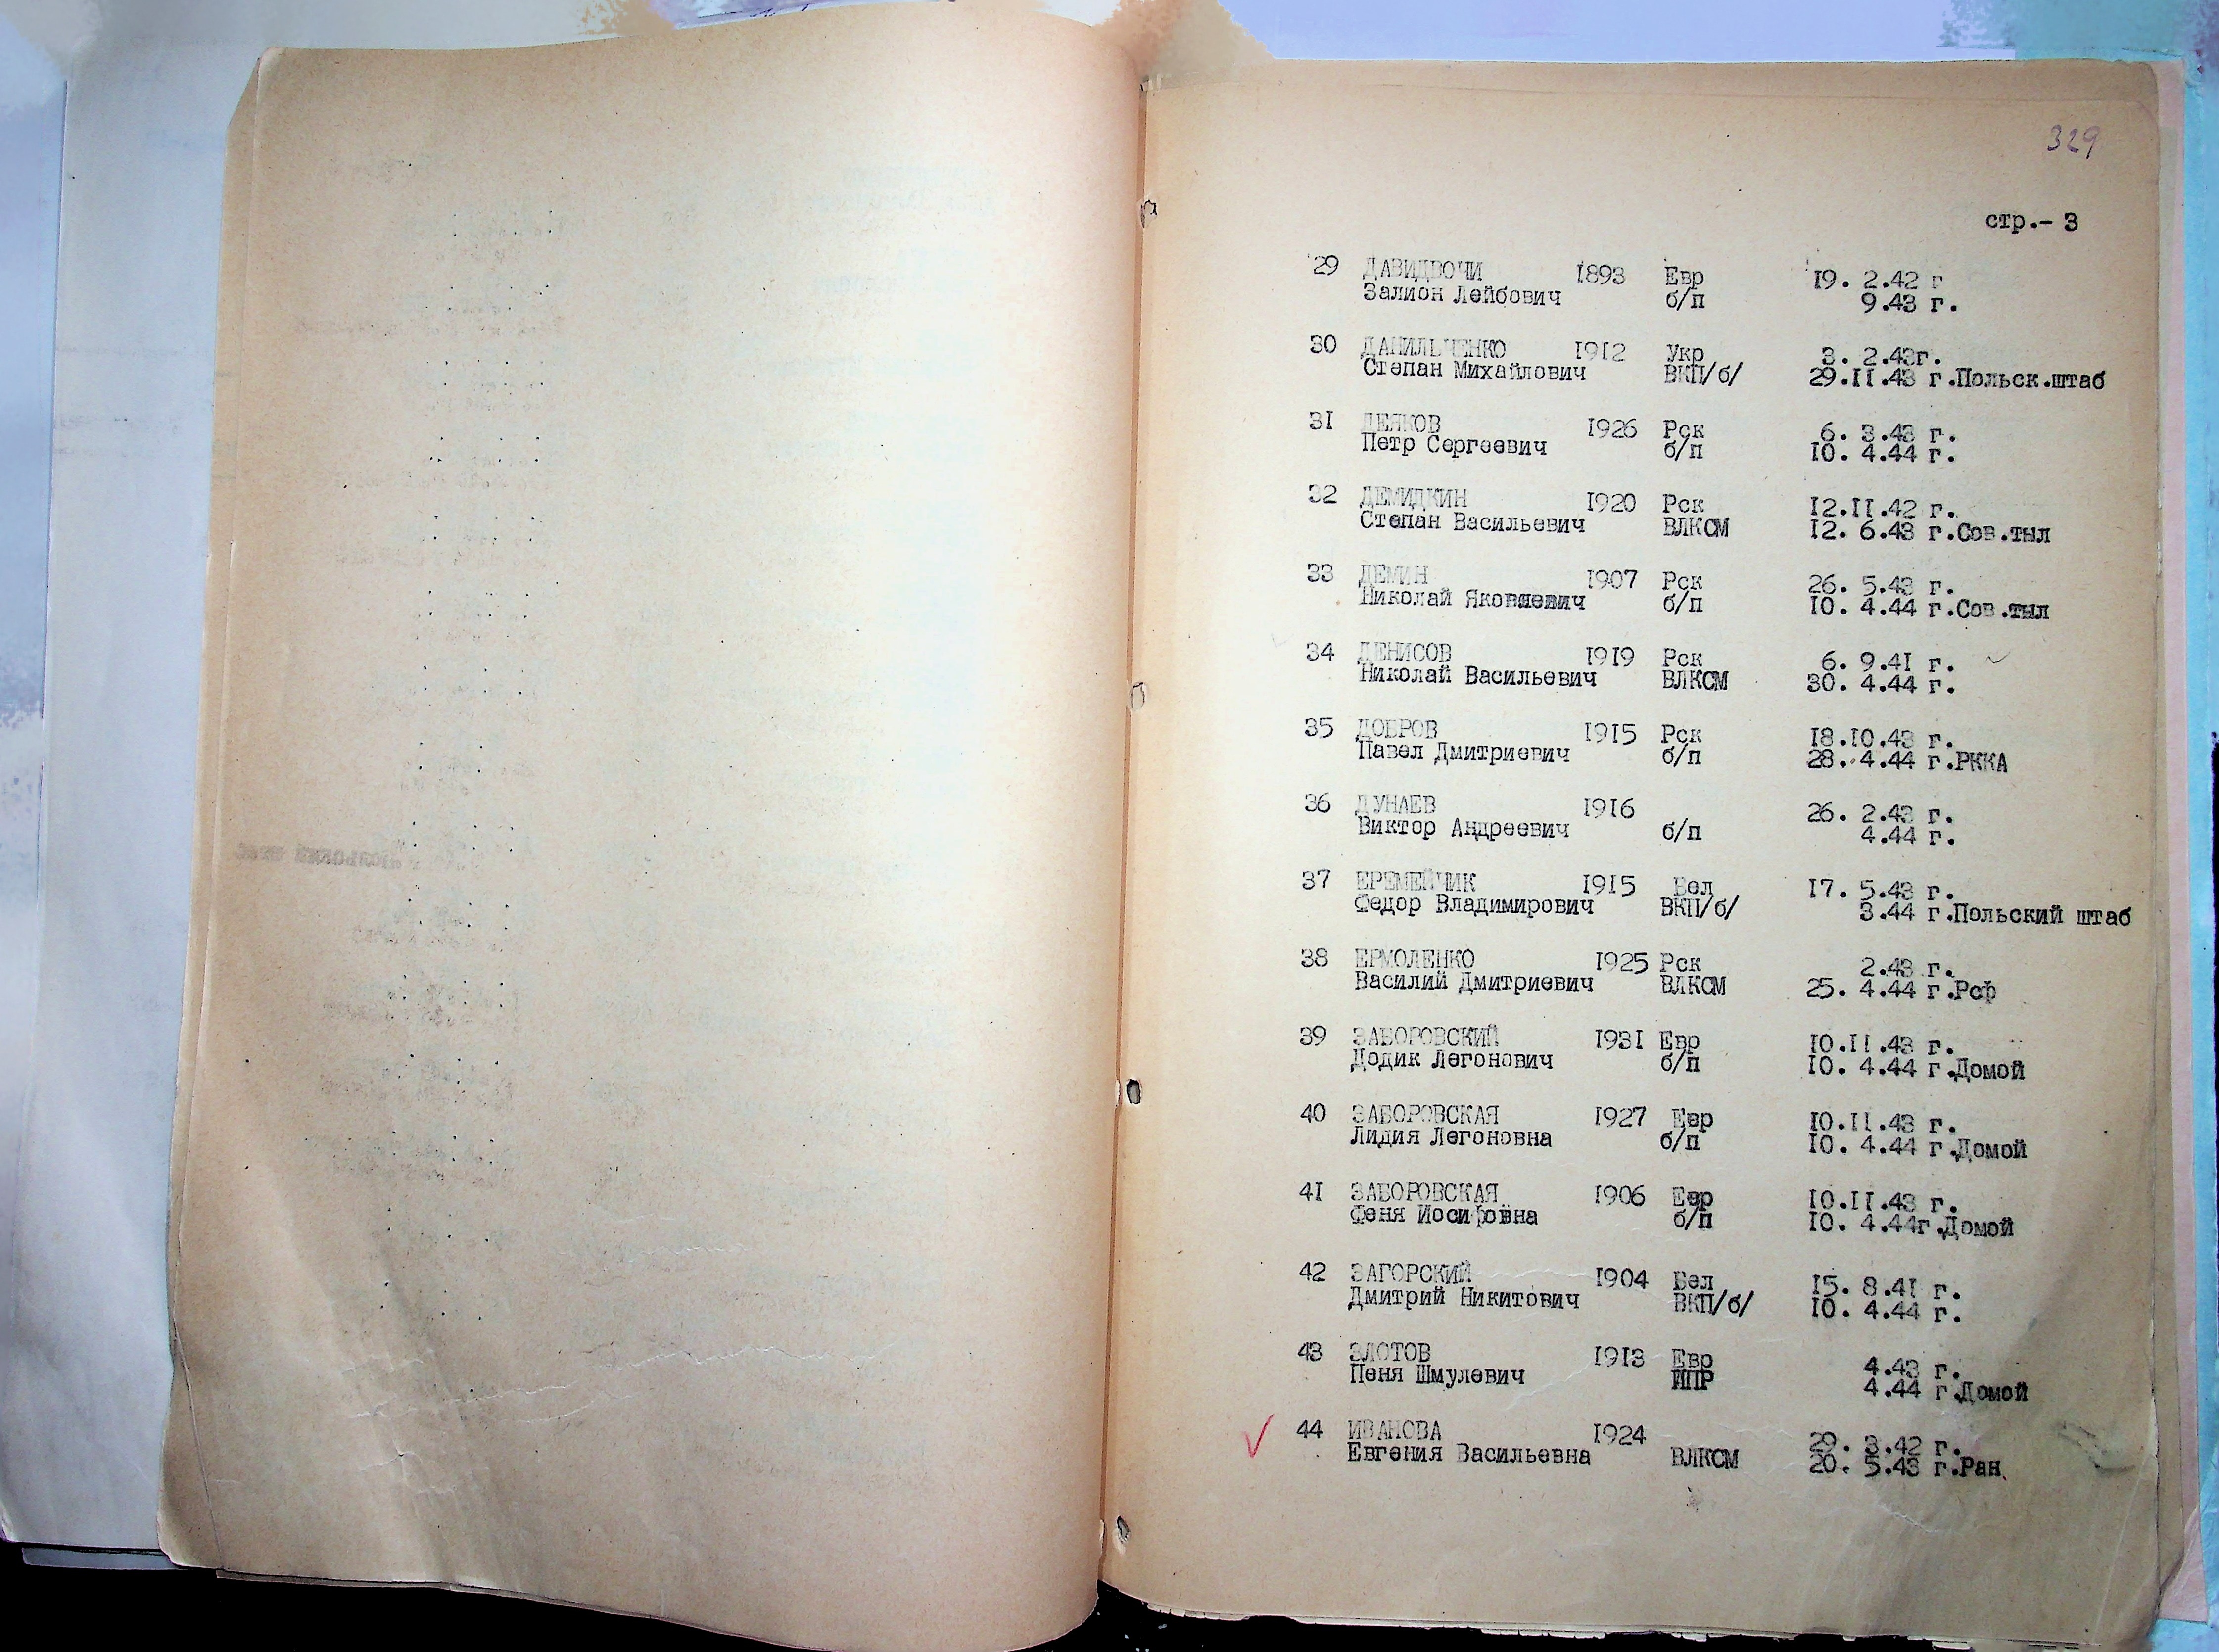 329
стр.- 3
29 ДАВИДВОЧИ 1893 Евр 19. 2.42 г
Залион Лейбович б/п 9.43 г.
30 ДАНИЛЬЧЕНКО 1912 Укр 3. 2.43г.
Степан Михайлович ВКП/б/ 29.II.43 г.Польск.штаб
31 ДЕЯКОВ 1926 Рск 6. 3.43 г.
Петр Сергеевич б/п 10. 4.44 г.
32 ДЕМИДКИН 1920 Рск 12.II.42 г.
Степан Васильевич ВЛКСМ 12. 6.43 г.Сов.тыл
33 ДЕМИН 1907 Рск 26. 5.43 г.
Николай Яковлевич б/п 10. 4.44 г.Сов.тыл
34 ДЕНИСОВ 1919 Рск 6. 9.41 г.
Николай Васильевич ВЛКСМ 30. 4.44 г.
35 ДОБРОВ 1915 Рск 18.10.43 г.
Павел Дмитриевич б/п 28. 4.44 г.РККА
36 ДУНАЕВ 1916 26. 2.43 г.
Виктор Андреевич б/п 4.44 г.
37 ЕРЕМЕЙЧИК 1915 Бел 17. 5.43 г.
Федор Владимирович ВКП/б/ 3.44 г.Польский штаб
38 ЕРМОЛЕНКО 1925 Рск 2.43 г.
Василий Дмитриевич ВЛКСМ 25. 4.44 г.Рсф
39 ЗАБОРОВСКИЙ 1931 Евр 10.II.43 г.
Додик Легонович б/п 10. 4.44 г.Домой
40 ЗАБОРОВСКАЯ 1927 Евр 10.II.43 г.
Лидия Легоновна б/п 10. 4.44 г.Домой
41 ЗАБОРОВСКАЯ 1906 Евр 10.II.43 г.
Феня Иосифовна б/п 10. 4.44г.Домой
42 ЗАГОРСКИЙ 1904 Бел 15. 8.41 г.
Дмитрий Никитович ВКП/б/ 10. 4.44 г.
43 ЗЛОТОВ 1913 Евр 4.43 г.
Пеня Шмулевич ИПР 4.44 г.Домой
44 ИВАНОВА 1924 29. 3.42 г.
Евгения Васильевна ВЛКСМ 20. 5.43 г.Ран.